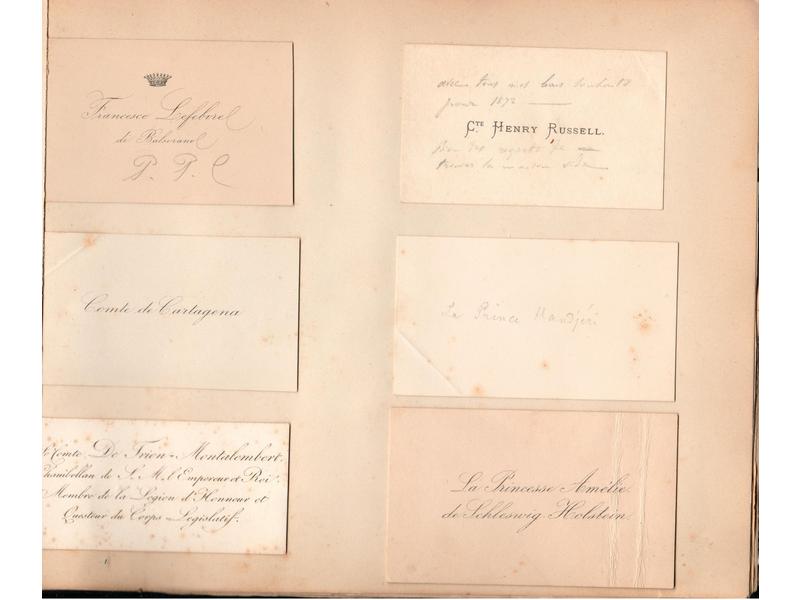 Francesco Lefebvre
de Balsorano
P. P. C
Comte de Cartagena
Le Comte De Trion-Montalembert.
Chambellan de S. M. l'Empereur et Roi
Membre de la Légion d'Honneur et
Questeur du Corps-Législatif.
avec tous mes bons souhaits
pour 1872
CTE HENRY RUSSELL.
regrets de
trouver la maison vide
Le Prince
La Princesse Amélie
de Schleswig-Holstein